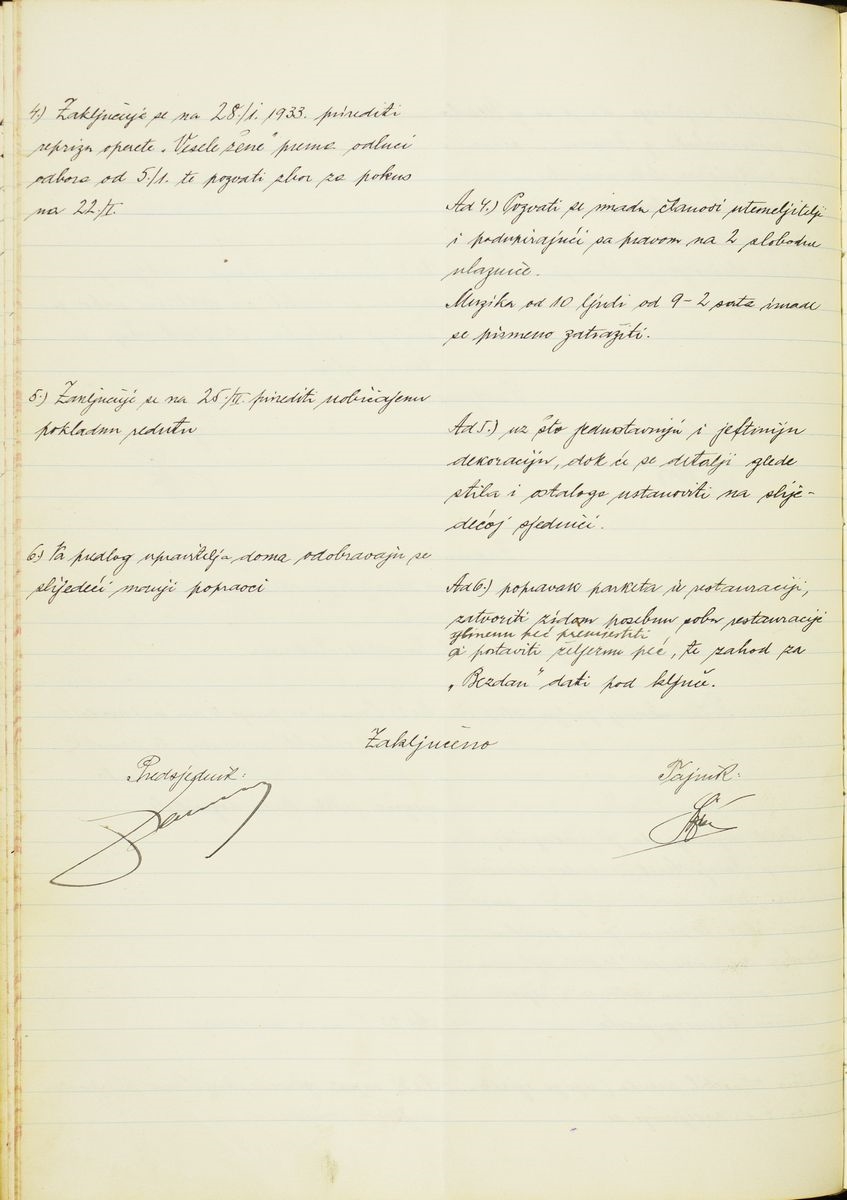 4.) Zaključuje se na 28./I. 1933. prirediti
reprizu operete „Vesele žene" prema odluci
odbora od 5./I. te pozvati zbor za pokus
na 22./I.
Ad 4.) Pozvati se imadu članovi utemeljitelji
i podupirajući sa pravom na 2 slobodne
ulaznice.
Muzika od 10 ljudi od 9-2 sata imade
se pismeno zatražiti.
5.) Zaključuje se na 25./II. prirediti uobičajenu
pokladnu redutu
Ad 5.) uz što jednostavniju i jeftiniju
dekoraciju, dok će se detalji glede
stila i ostaloga ustanoviti na slije-
dećoj sjednici.
6.) Na predlog upravitelja doma odobravaju se
slijedeći manji popravci
Ad 6.) popravak parketa u restauraciji,
zatvoriti zidom posebnu sobu restauracije
peć premjestiti
i postaviti željeznu peć, te zahod za
„Bezdan" dati pod ključ.
Zaključeno
Predsjednik:
Tajnik: